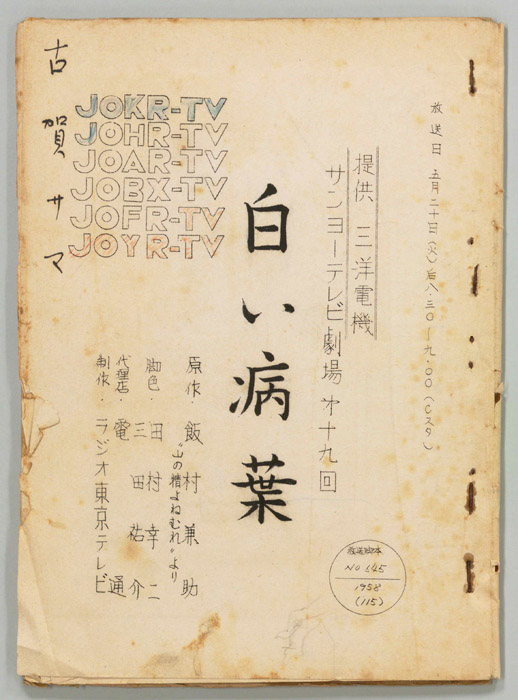 放送日 五月二十日(火)后八.三〇〜九.〇〇(Cスタ)
提供 三洋電機
サンヨーテレビ劇場 才十九回
白い病葉
原作・飯村兼助
〝山の樁よねむれ〟より
脚色・田村幸二
三田祐介
代理店・電通
制作・ラジオ東京テレビ
JOKR-TV
JOHR-TV
JOAR-TV
JOBX-TV
JOFR-TV
JOYR-TV
古賀サマ
放送脚本
NO 545
1958
(115)